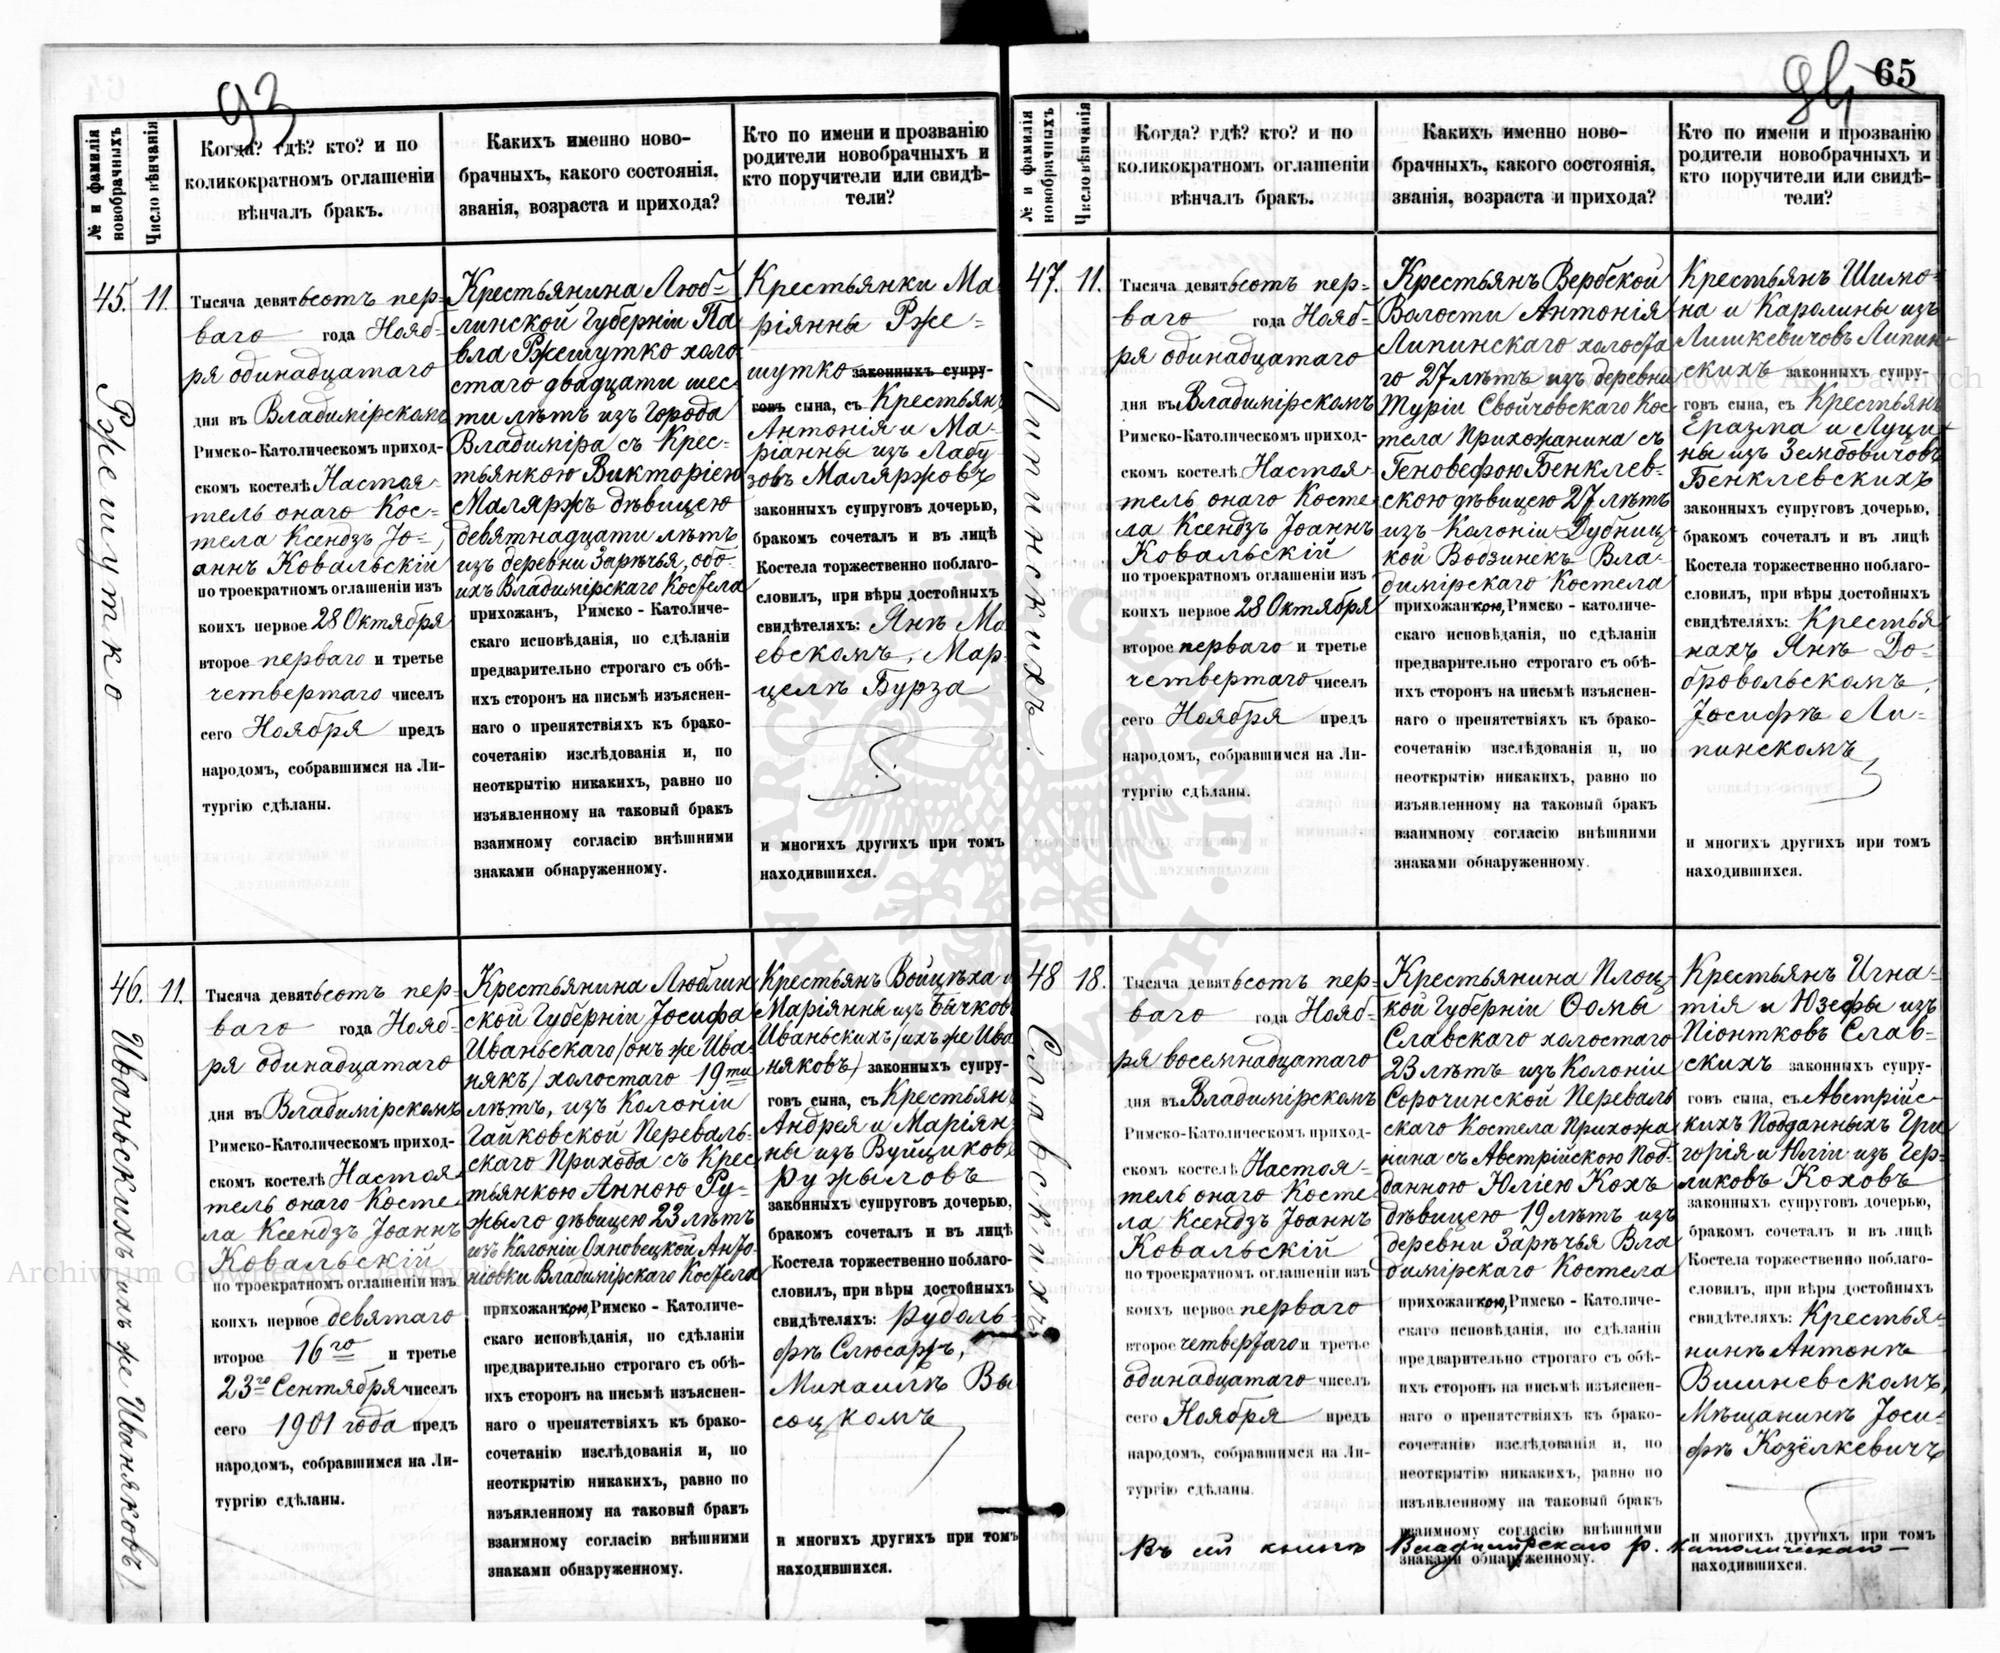 93
№ и фамилія новобрачныхъ
Число вѣнчанія
Когда? гдѣ? кто? и по
коликократномъ оглашеніи
вѣнчалъ бракъ.
Какихъ именно ново-
брачныхъ, какого состоянія,
званія, возраста и прихода?
Кто по имени и прозванію
родители новобрачныхъ и
кто поручители или свидѣ-
тели?
45.
11.
Ржешутко
Тысяча девятьсотъ пер-
ваго года Нояб-
ря одинадцатаго
дня въ Владимірскомъ
Римско-Католическомъ приход-
скомъ костелѣ Настоя-
тель онаго Кос-
тела Ксендзъ Іо-
аннъ Ковальскій
по троекратномъ оглашеніи изъ
коихъ первое 28 Октября
второе перваго и третье
четвертаго чиселъ
сего Ноября предъ
народомъ, собравшимся на Ли-
тургію сдѣланы.
Крестьянина Люб-
линской Губерніи Па
вла Ржешутко холо
стаго двадцати шес
ти лѣтъ изъ Города
Владиміра съ Крес-
тьянкою Викторіею
Маляржъ дѣвицею
девятнадцати лѣтъ
изъ деревни Зарѣчья, обо-
ихъ Владимірскаго Костела
прихожанъ, Римско - Католиче-
скаго исповѣданія, по сдѣланіи
предварительно строгаго съ обѣ-
ихъ сторонъ на письмѣ изъяснен-
наго о препятствіяхъ къ брако-
сочетанію изслѣдованія и, по
неоткрытію никакихъ, равно по
изъявленному на таковый бракъ
взаимному согласію внѣшними
знаками обнаруженному.
Крестьянки Ма
ріянны Рже-
шутко законныхъ супру-
говъ сына, съ Крестьянъ
Антонія и Ма-
ріанны изъ Лабу
зовъ Маляржовъ
законныхъ супруговъ дочерью,
бракомъ сочеталъ и въ лицѣ
Костела торжественно поблаго-
словилъ, при вѣры достойныхъ
свидѣтеляхъ: Янѣ Ма
евскомъ, Мар-
целѣ Бурза
и многихъ другихъ при томъ
находившихся.
46.
11.
Иваньскихъ ихъ же Иваняковъ)
Тысяча девятьсотъ пер-
ваго года Нояб-
ря одинадцатаго
дня въ Владимірскомъ
Римско-Католическомъ приход-
скомъ костелѣ Настоя-
тель онаго Косте-
ла Ксендзъ Іоаннъ
Ковальскій
по троекратномъ оглашеніи изъ
коихъ первое девятаго
второе 16го и третье
23го Сентября чиселъ
сего 1901 года предъ
народомъ, собравшимся на Ли-
тургію сдѣланы.
Крестьянина Люблин
ской Губерніи Іосифа
Иваньскаго (онъ же Ива-
някъ) холостаго 19ти
лѣтъ, изъ Колоніи
Гайковской Переваль-
скаго Прихода съ Крес
тьянкою Анною Ру-
жыло дѣвицею 23 лѣтъ
изъ Колоніи Охновецкой Анто-
новки Владимірскаго Костела
прихожанкою, Римско - Католиче-
скаго исповѣданія, по сдѣланіи
предварительно строгаго съ обѣ-
ихъ сторонъ на письмѣ изъяснен-
наго о препятствіяхъ къ брако-
сочетанію изслѣдованія и, по
неоткрытію никакихъ, равно по
изъявленному на таковый бракъ
взаимному согласію внѣшними
знаками обнаруженному.
Крестьянъ Войцѣха и
Маріянны изъ Бачков
Иваньскихъ (ихъ же Ива
няковъ) законныхъ супру-
говъ сына, съ Крестьянъ
Андрея и Маріян
ны изъ Вуйциков
Ружыловъ
законныхъ супруговъ дочерью,
бракомъ сочеталъ и въ лицѣ
Костела торжественно поблаго-
словилъ, при вѣры достойныхъ
свидѣтеляхъ: Рудоль-
фѣ Слюсаръ,
Михаилѣ Вы
соцкомъ
и многихъ другихъ при томъ
находившихся.
94
65
№ и фамилія новобрачныхъ
Число вѣнчанія
Когда? гдѣ? кто? и по
коликократномъ оглашеніи
вѣнчалъ бракъ.
Какихъ именно ново-
брачныхъ, какого состоянія,
званія, возраста и прихода?
Кто по имени и прозванію
родители новобрачныхъ и
кто поручители или свидѣ-
тели?
47.
11.
Липинскихъ.
Тысяча девятьсотъ пер-
ваго года Нояб-
ря одинадцатаго
дня въ Владимірскомъ
Римско-Католическомъ приход-
скомъ костелѣ Настоя-
тель онаго Косте-
ла Ксендзъ Іоаннъ
Ковальскій
по троекратномъ оглашеніи изъ
коихъ первое 28 Октября
второе перваго и третье
четвертаго чиселъ
сего Ноября предъ
народомъ, собравшимся на Ли-
тургію сдѣланы.
Крестьянъ Вербской
Волости Антонія
Липинскаго холоста
го 27 лѣтъ изъ деревни
Туріи Свойчовскаго Кос
тела Прихожанина съ
Геновефою Бенклев-
скою дѣвицею 27 лѣтъ
изъ Колоніи Дубниц-
кой Водзинекъ Вла-
димірскаго Костела
прихожанкою, Римско - католиче-
скаго исповѣданія, по сдѣланіи
предварительно строгаго съ обѣ-
ихъ сторонъ на письмѣ изъяснен-
наго о препятствіяхъ къ брако-
сочетанію изслѣдованія и, по
неоткрытію никакихъ, равно по
изъявленному на таковый бракъ
взаимному согласію внѣшними
знаками обнаруженному.
Крестьянъ Шимо-
на и Каролины изъ
Лишкевичовъ Липин-
скихъ законныхъ супру-
говъ сына, съ Крестьянъ
Еразма и Луци-
ны изъ Зембовичовъ
Бенклевскихъ
законныхъ супруговъ дочерью,
бракомъ сочеталъ и въ лицѣ
Костела торжественно поблаго-
словилъ, при вѣры достойныхъ
свидѣтеляхъ: Крестья
нахъ Янѣ До-
бровольскомъ,
Іосифѣ Ли-
пинскомъ
и многихъ другихъ при томъ
находившихся.
48
18.
Славскихъ
Тысяча девятьсотъ пер-
ваго года Нояб-
ря восемнадцатаго
дня въ Владимірскомъ
Римско-Католическомъ приход-
скомъ костелѣ Настоя-
тель онаго Косте-
ла Ксендзъ Іоаннъ
Ковальскій
по троекратномъ оглашеніи изъ
коихъ первое перваго
второе четвертаго и третье
одинадцатаго чиселъ
сего Ноября предъ
народомъ, собравшимся на Ли-
тургію сдѣланы.
Крестьянина Плоц-
кой Губерніи Ѳомы
Славскаго холостаго
23 лѣтъ изъ Колоніи
Сорочинской Переваль
скаго Костела Прихожа
нина съ Австрійскою Под-
данною Юліею Кохъ
дѣвицею 19 лѣтъ изъ
деревни Зарѣчья Вла
димірскаго Костела
прихожанкою, Римско - Католиче-
скаго исповѣданія, по сдѣланіи
предварительно строгаго съ обѣ-
ихъ сторонъ на письмѣ изъяснен-
наго о препятствіяхъ къ брако-
сочетанію изслѣдованія и, по
неоткрытію никакихъ, равно по
изъявленному на таковый бракъ
взаимному согласію внѣшними
знаками обнаруженному.
Крестьянъ Игна-
тія и Юзефы изъ
Піонтковъ Слав-
скихъ законныхъ супру-
говъ сына, съ Австрійс-
кихъ Подданныхъ Гри
горія и Юліи изъ Гер-
ликовъ Коховъ
законныхъ супруговъ дочерью,
бракомъ сочеталъ и въ лицѣ
Костела торжественно поблаго-
словилъ, при вѣры достойныхъ
свидѣтеляхъ: Крестья-
нинѣ Антонѣ
Вишневскомъ,
Мѣщанинѣ Іоси-
фѣ Козёлкевичъ
и многихъ другихъ при томъ
находившихся.
Въ сей книгѣ Владимірскаго р. Католическаго
Archiwum Główne Akt Dawnych
Archiwum Główne Akt Dawnych
ARCHIWUM GŁÓWNE AKT DAWNYCH